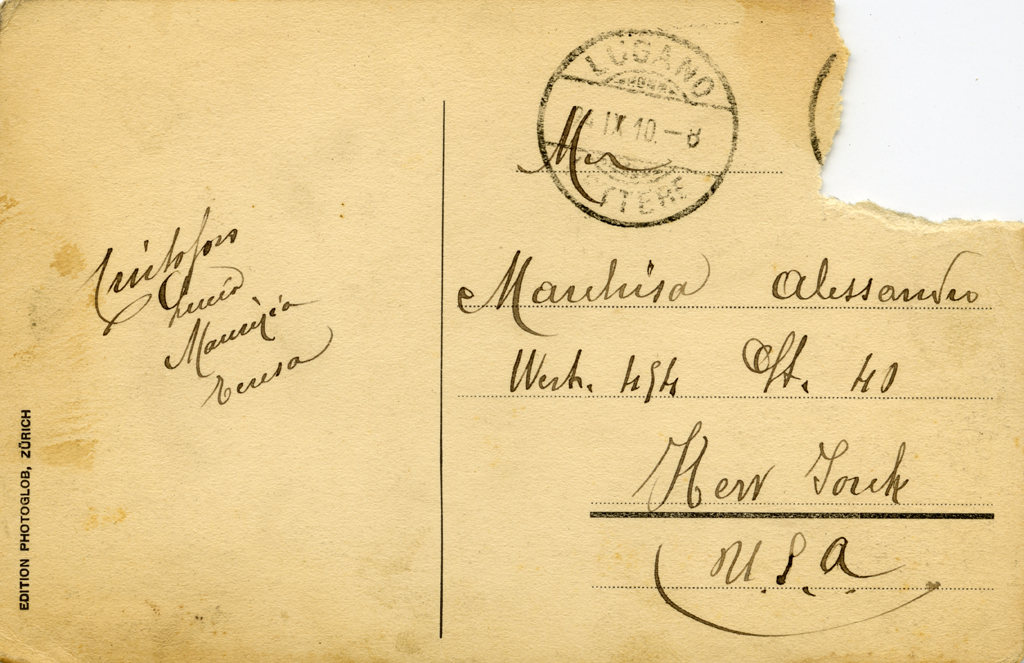 LUGANO
IX.10.–8
LETTERE
Mr
Marchisa Alessandro
West. 494 St. 40
New Jork
U.S.A.
Cristoforo
Lucia
Maurizia
Teresa
EDITION PHOTOGLOB, ZÜRICH